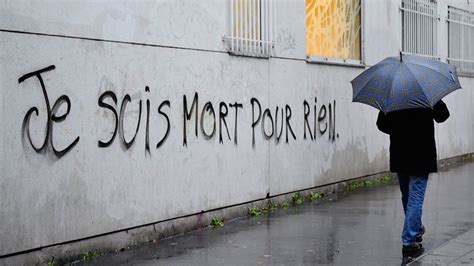 Je suis MORT POUR RIEN.